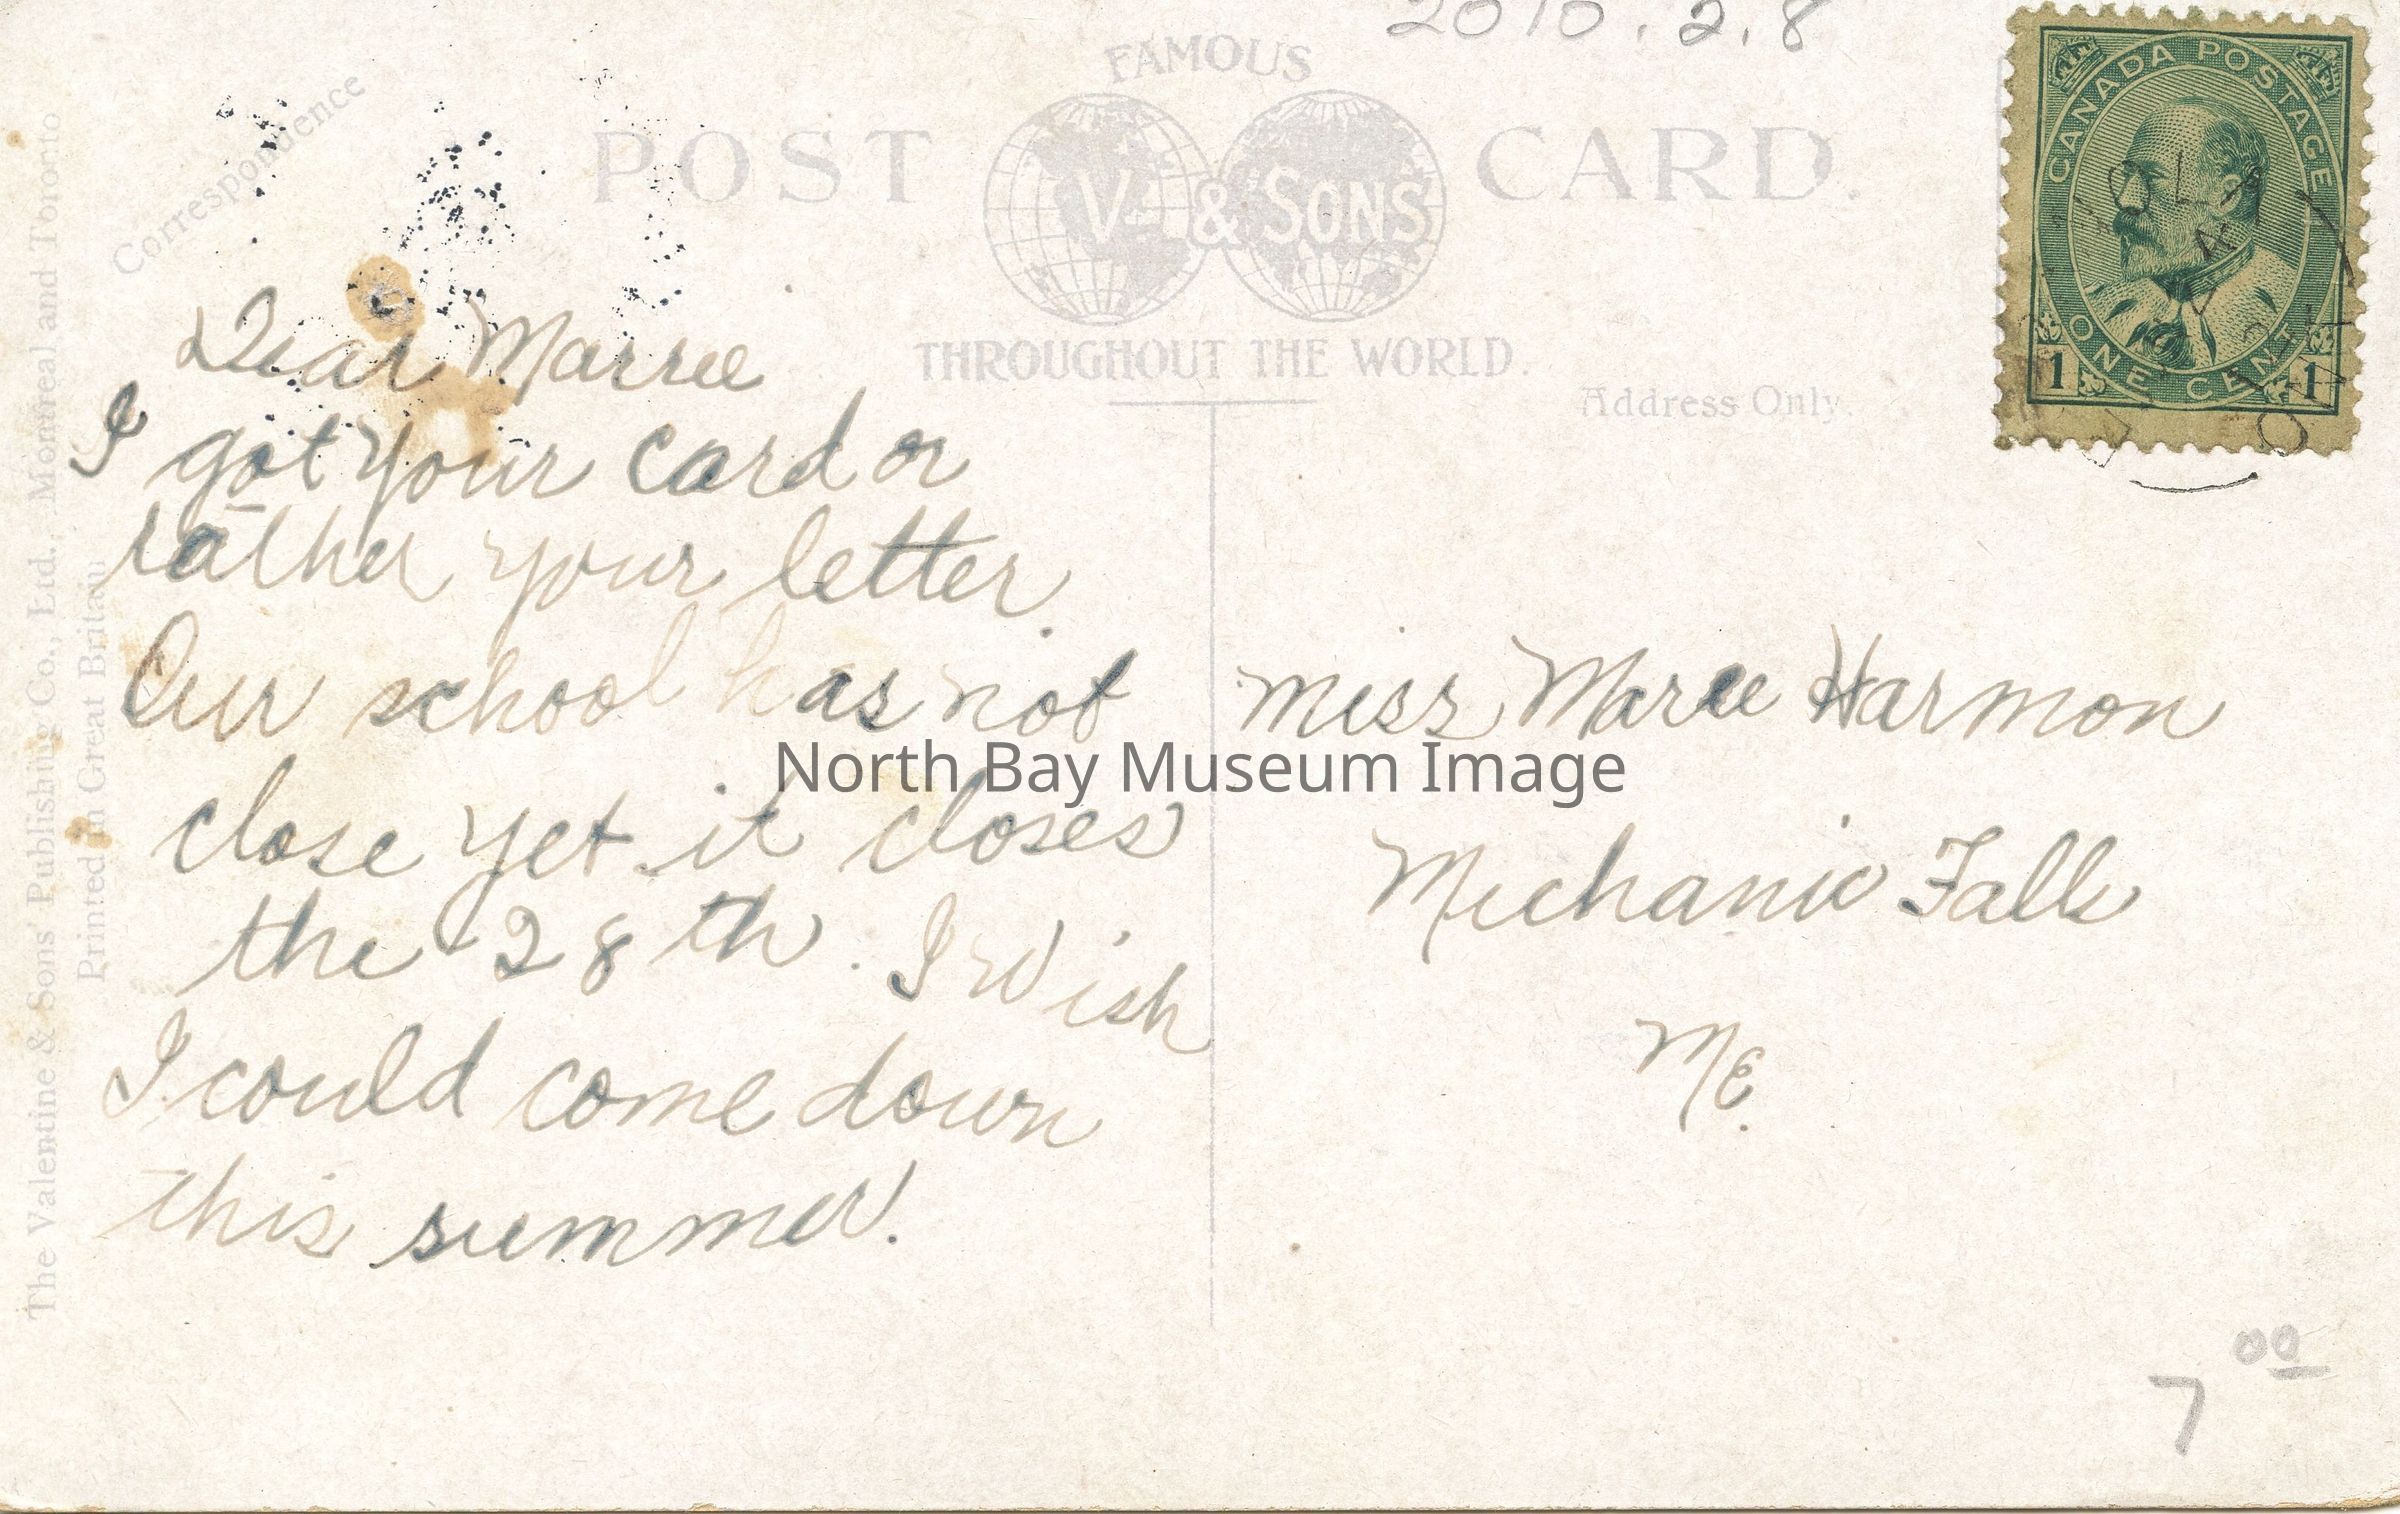 2010.2.8
FAMOUS
POST CARD.
V. & SONS
THROUGHOUT THE WORLD.
Correspondence
Address Only.
CANADA POSTAGE
1 ONE CENT 1
The Valentine & Sons' Publishing Co., Ltd., Montreal and Toronto
Printed in Great Britain
Dear Marree
I got your card or
rather your letter.
Our school has not
close yet it closes
the 28th. I wish
I could come down
this summer.
Miss Maree Harmon
Mechanic Falls
ME.
North Bay Museum Image
7 00